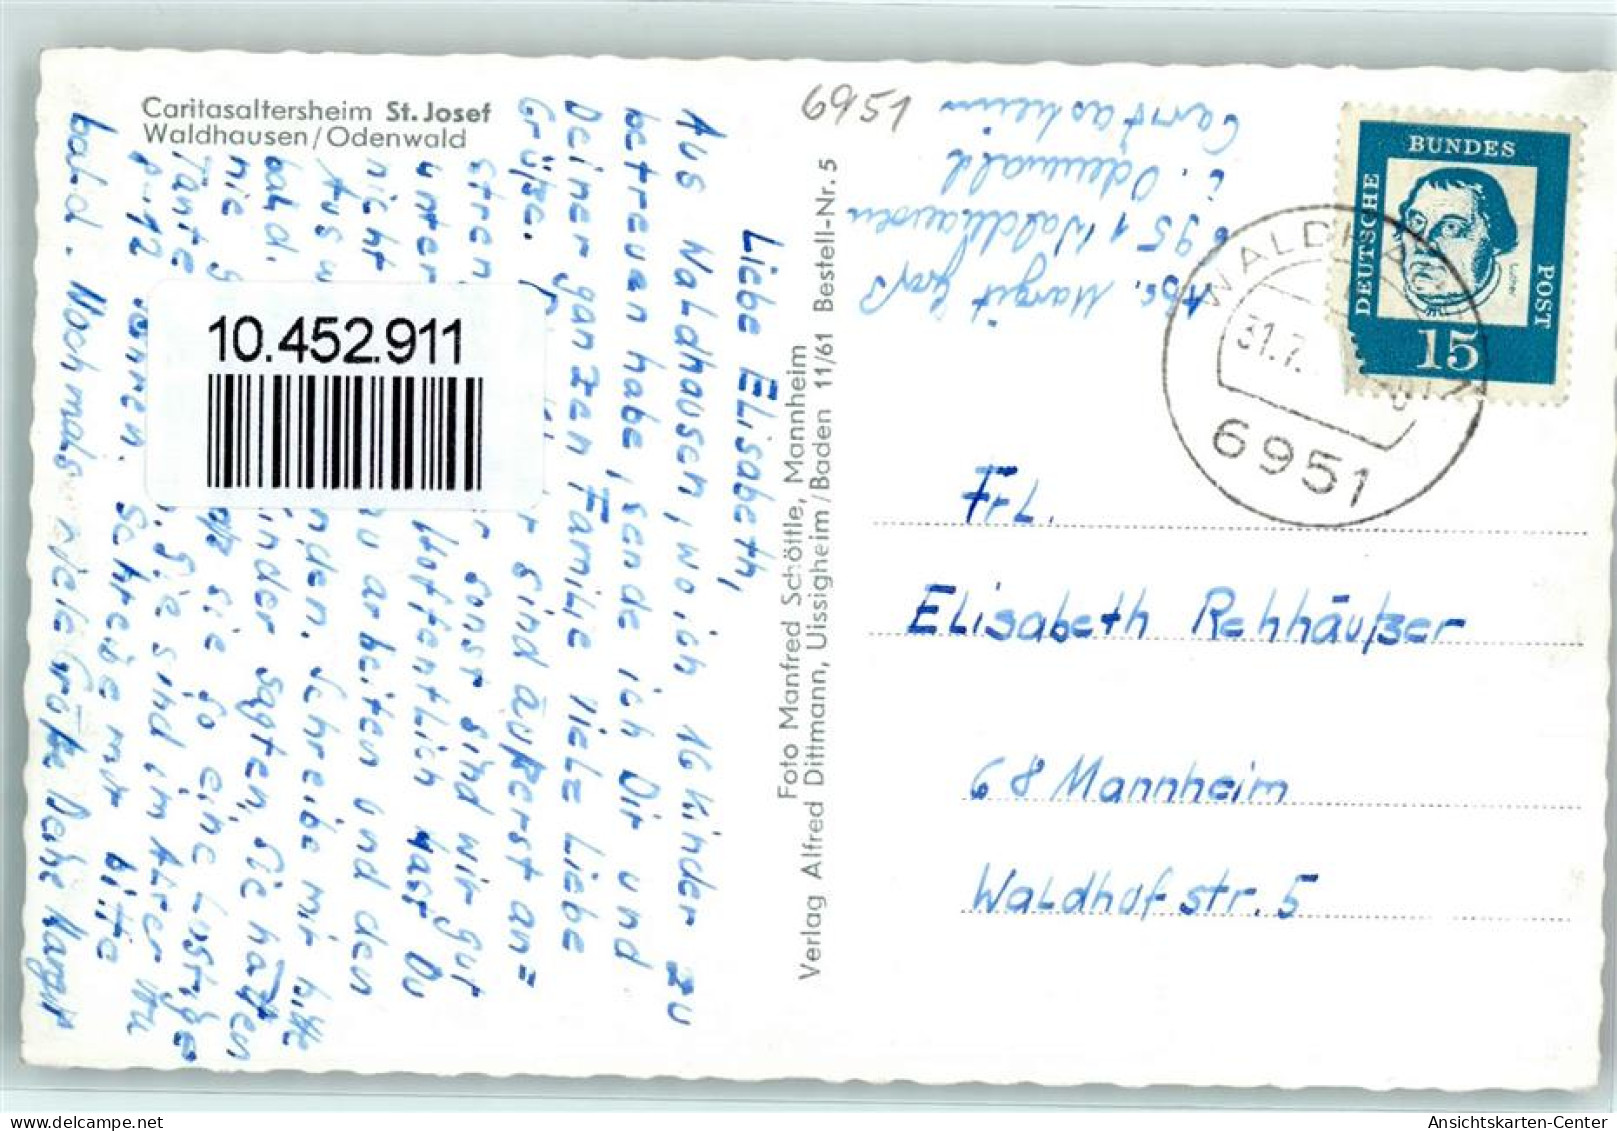 Caritasaltersheim St. Josef
Waldhausen/Odenwald
Liebe Elisabeth,
Aus Waldhausen, wo ich 16 Kinder zu
betreuen habe, sende ich Dir und
Deiner ganzen Familie vielz Liebe
Grüße. sind äußerst an=
stren sonst sind wir gut
unter Hoffentlich hast Du
nicht zu arbeiten und den
Aus w nden. Schreibe mir bitte
bald. Kinder sagten, sie hätten
nie g sie so eine Lustige
Tante Sie sind im Alter von
8-12 Jahren. Schreibe mir bitte
bald. Nochmals viele Grüße Deine Margit
10.452.911
Foto Manfred Schöttle, Mannheim
Verlag Alfred Dittmann, Uissigheim/Baden 11/61 Bestell-Nr. 5
6951
Abs. Margit Groß
6951 Waldhausen
i. Odenwald
Caritasheim
DEUTSCHE
BUNDES
POST
Luther
15
WALDHAU
31.7.
6951
Frl.
Elisabeth Rehhäußer
68 Mannheim
Waldhofstr. 5
Ansichtskarten-Center